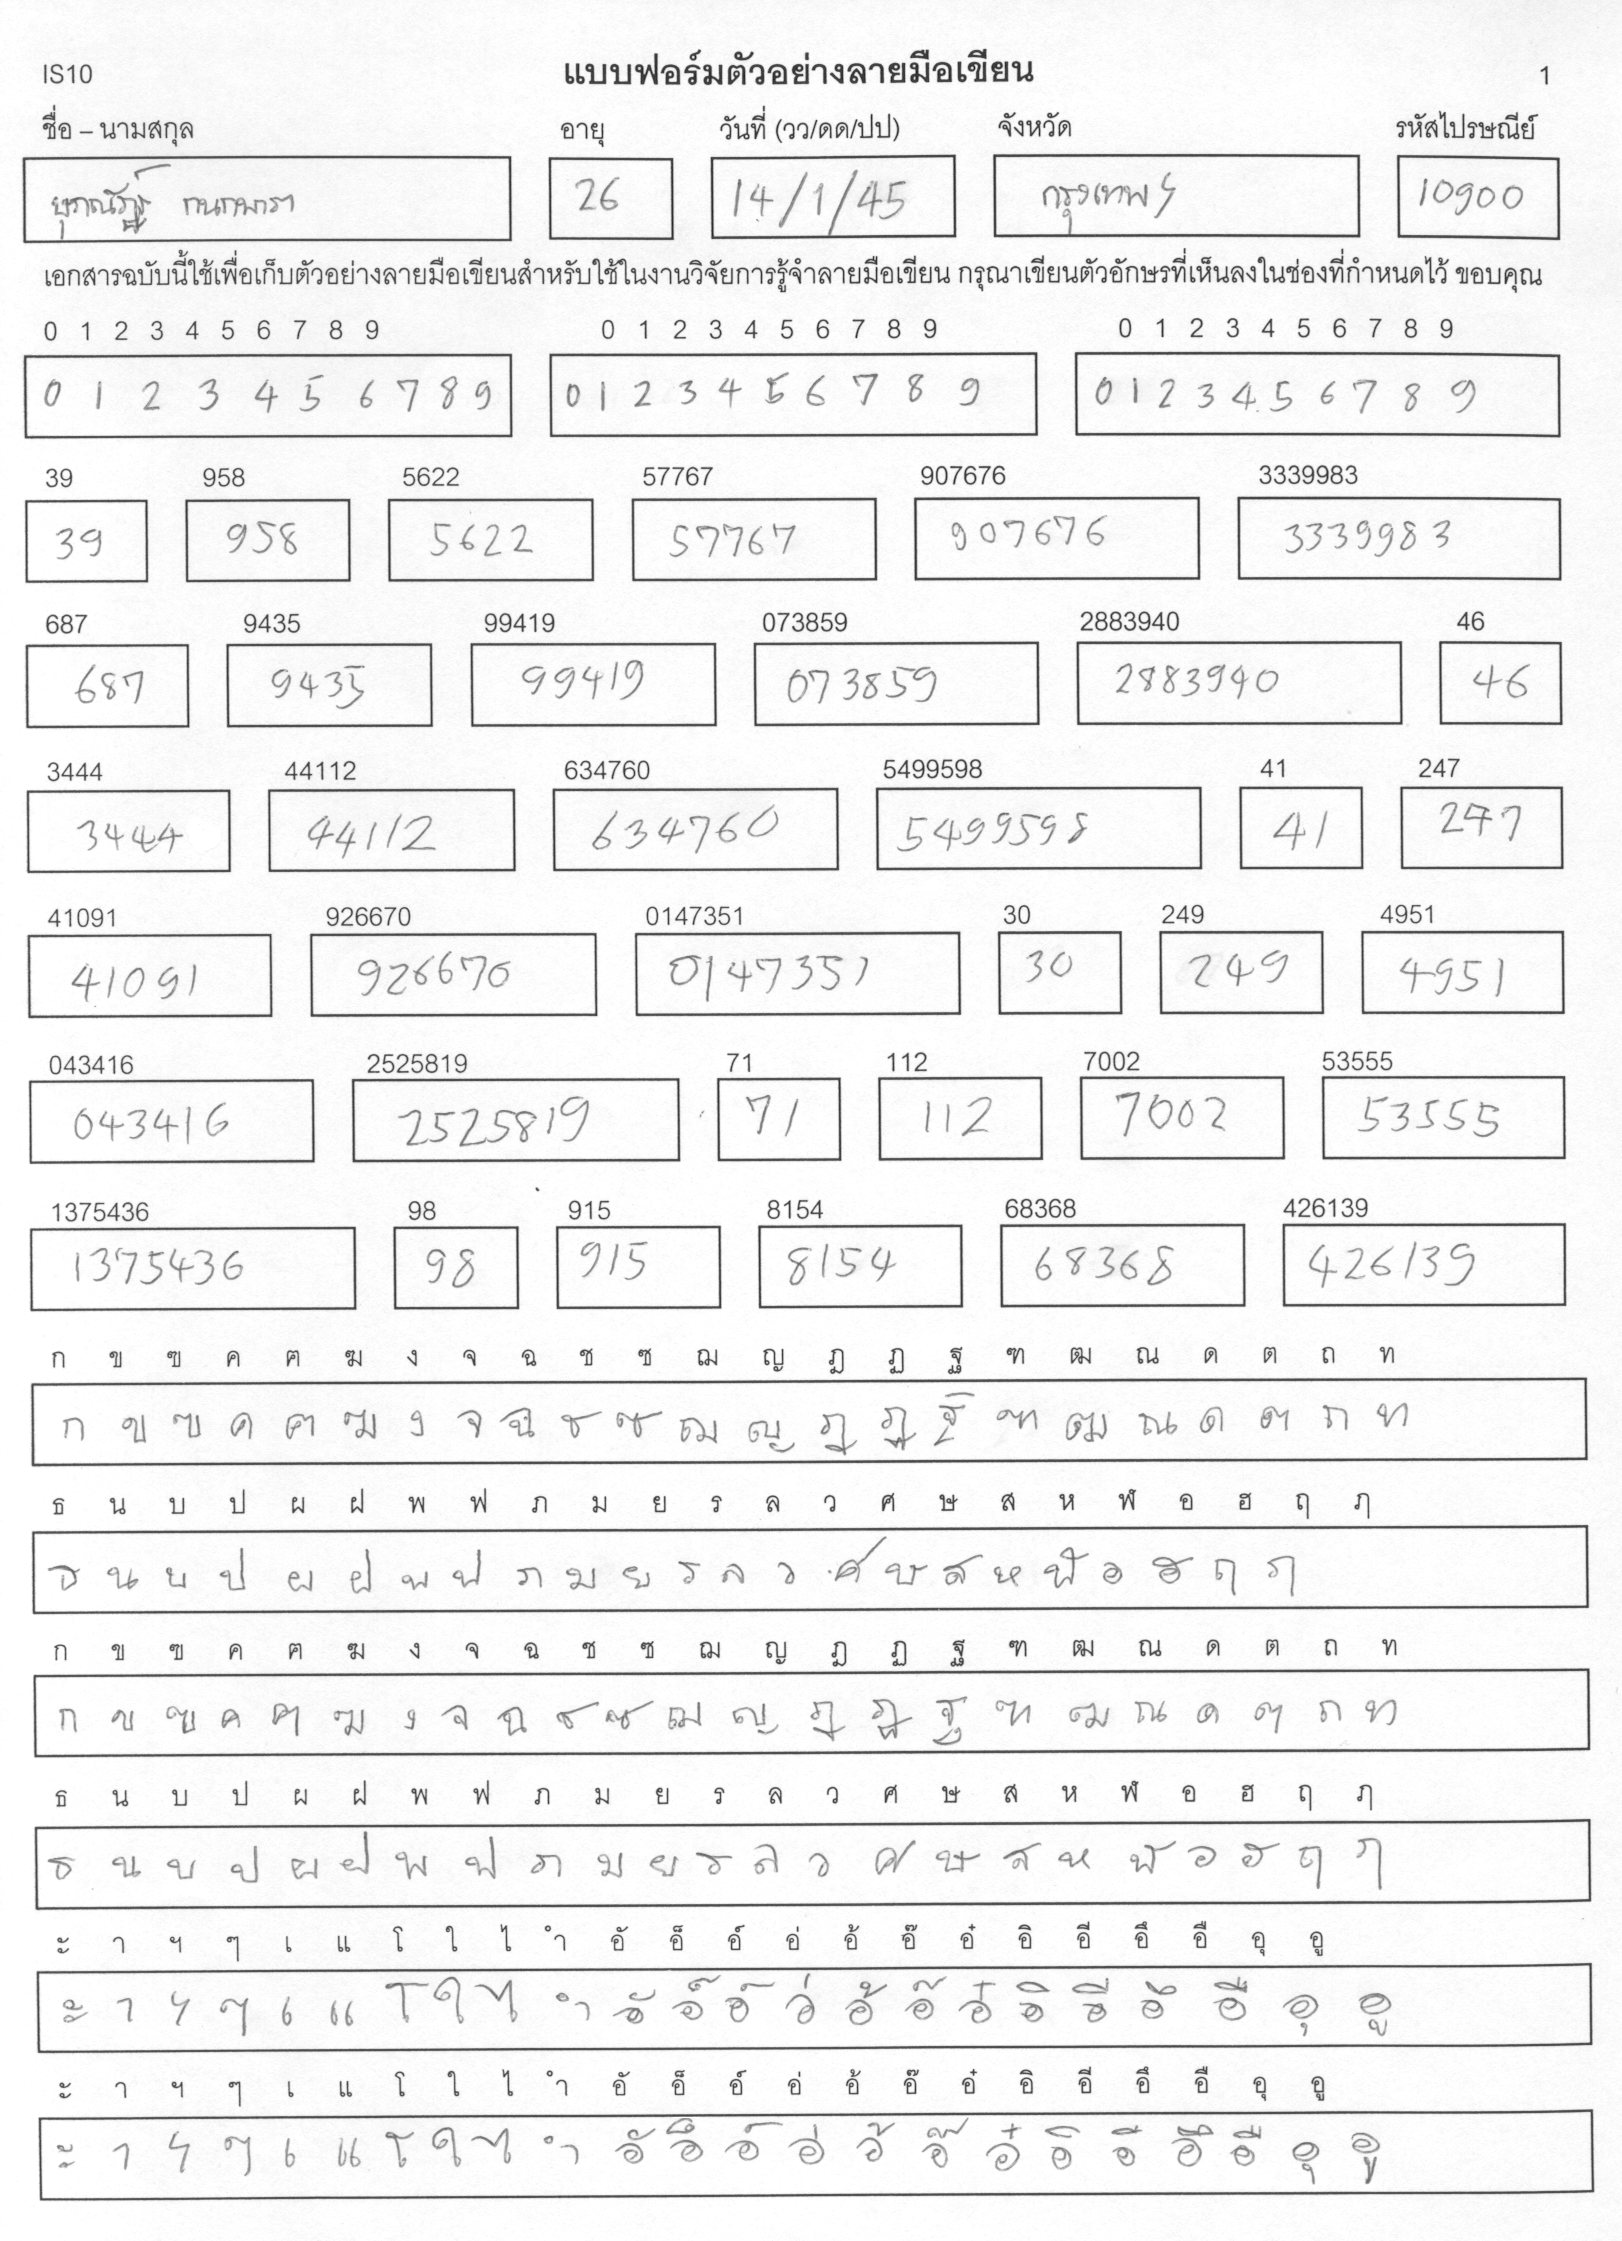 IS10 แบบฟอร์มตัวอย่างลายมือเขียน 1
ชื่อ – นามสกุล อายุ วันที่ (วว/ดด/ปป) จังหวัด รหัสไปรษณีย์
26 14/1/45 กรุงเทพฯ 10900
เอกสารฉบับนี้ใช้เพื่อเก็บตัวอย่างลายมือเขียนสำหรับใช้ในงานวิจัยการรู้จำลายมือเขียน กรุณาเขียนตัวอักษรที่เห็นลงในช่องที่กำหนดไว้ ขอบคุณ
0 1 2 3 4 5 6 7 8 9 0 1 2 3 4 5 6 7 8 9 0 1 2 3 4 5 6 7 8 9
0 1 2 3 4 5 6 7 8 9 0 1 2 3 4 5 6 7 8 9 0 1 2 3 4 5 6 7 8 9
39 958 5622 57767 907676 3339983
39 958 5622 57767 907676 3339983
687 9435 99419 073859 2883940 46
687 9435 99419 073859 2883940 46
3444 44112 634760 5499598 41 247
3444 44112 634760 5499598 41 247
41091 926670 0147351 30 249 4951
41091 926670 0147351 30 249 4951
043416 2525819 71 112 7002 53555
043416 2525819 71 112 7002 53555
1375436 98 915 8154 68368 426139
1375436 98 915 8154 68368 426139
ก ข ฃ ค ฅ ฆ ง จ ฉ ช ซ ฌ ญ ฎ ฏ ฐ ฑ ฒ ณ ด ต ถ ท
ก ข ฃ ค ฅ ฆ ง จ ฉ ช ซ ฌ ญ ฎ ฏ ฐ ฑ ฒ ณ ด ต ถ ท
ธ น บ ป ผ ฝ พ ฟ ภ ม ย ร ล ว ศ ษ ส ห ฬ อ ฮ ฤ ฦ
ธ น บ ป ผ ฝ พ ฟ ภ ม ย ร ล ว ศ ษ ส ห ฬ อ ฮ ฤ ฦ
ก ข ฃ ค ฅ ฆ ง จ ฉ ช ซ ฌ ญ ฎ ฏ ฐ ฑ ฒ ณ ด ต ถ ท
ก ข ฃ ค ฅ ฆ ง จ ฉ ช ซ ฌ ญ ฎ ฏ ฐ ฑ ฒ ณ ด ต ถ ท
ธ น บ ป ผ ฝ พ ฟ ภ ม ย ร ล ว ศ ษ ส ห ฬ อ ฮ ฤ ฦ
ธ น บ ป ผ ฝ พ ฟ ภ ม ย ร ล ว ศ ษ ส ห ฬ อ ฮ ฤ ฦ
ะ า ฯ ๆ เ แ โ ใ ไ ำ อั อ็ อ์ อ่ อ้ อ๊ อ๋ อิ อี อึ อื อุ อู
ะ า ฯ ๆ เ แ โ ใ ไ ำ อั อ็ อ์ อ่ อ้ อ๊ อ๋ อิ อี อึ อื อุ อู
ะ า ฯ ๆ เ แ โ ใ ไ ำ อั อ็ อ์ อ่ อ้ อ๊ อ๋ อิ อี อึ อื อุ อู
ะ า ฯ ๆ เ แ โ ใ ไ ำ อั อ็ อ์ อ่ อ้ อ๊ อ๋ อิ อี อึ อื อุ อู